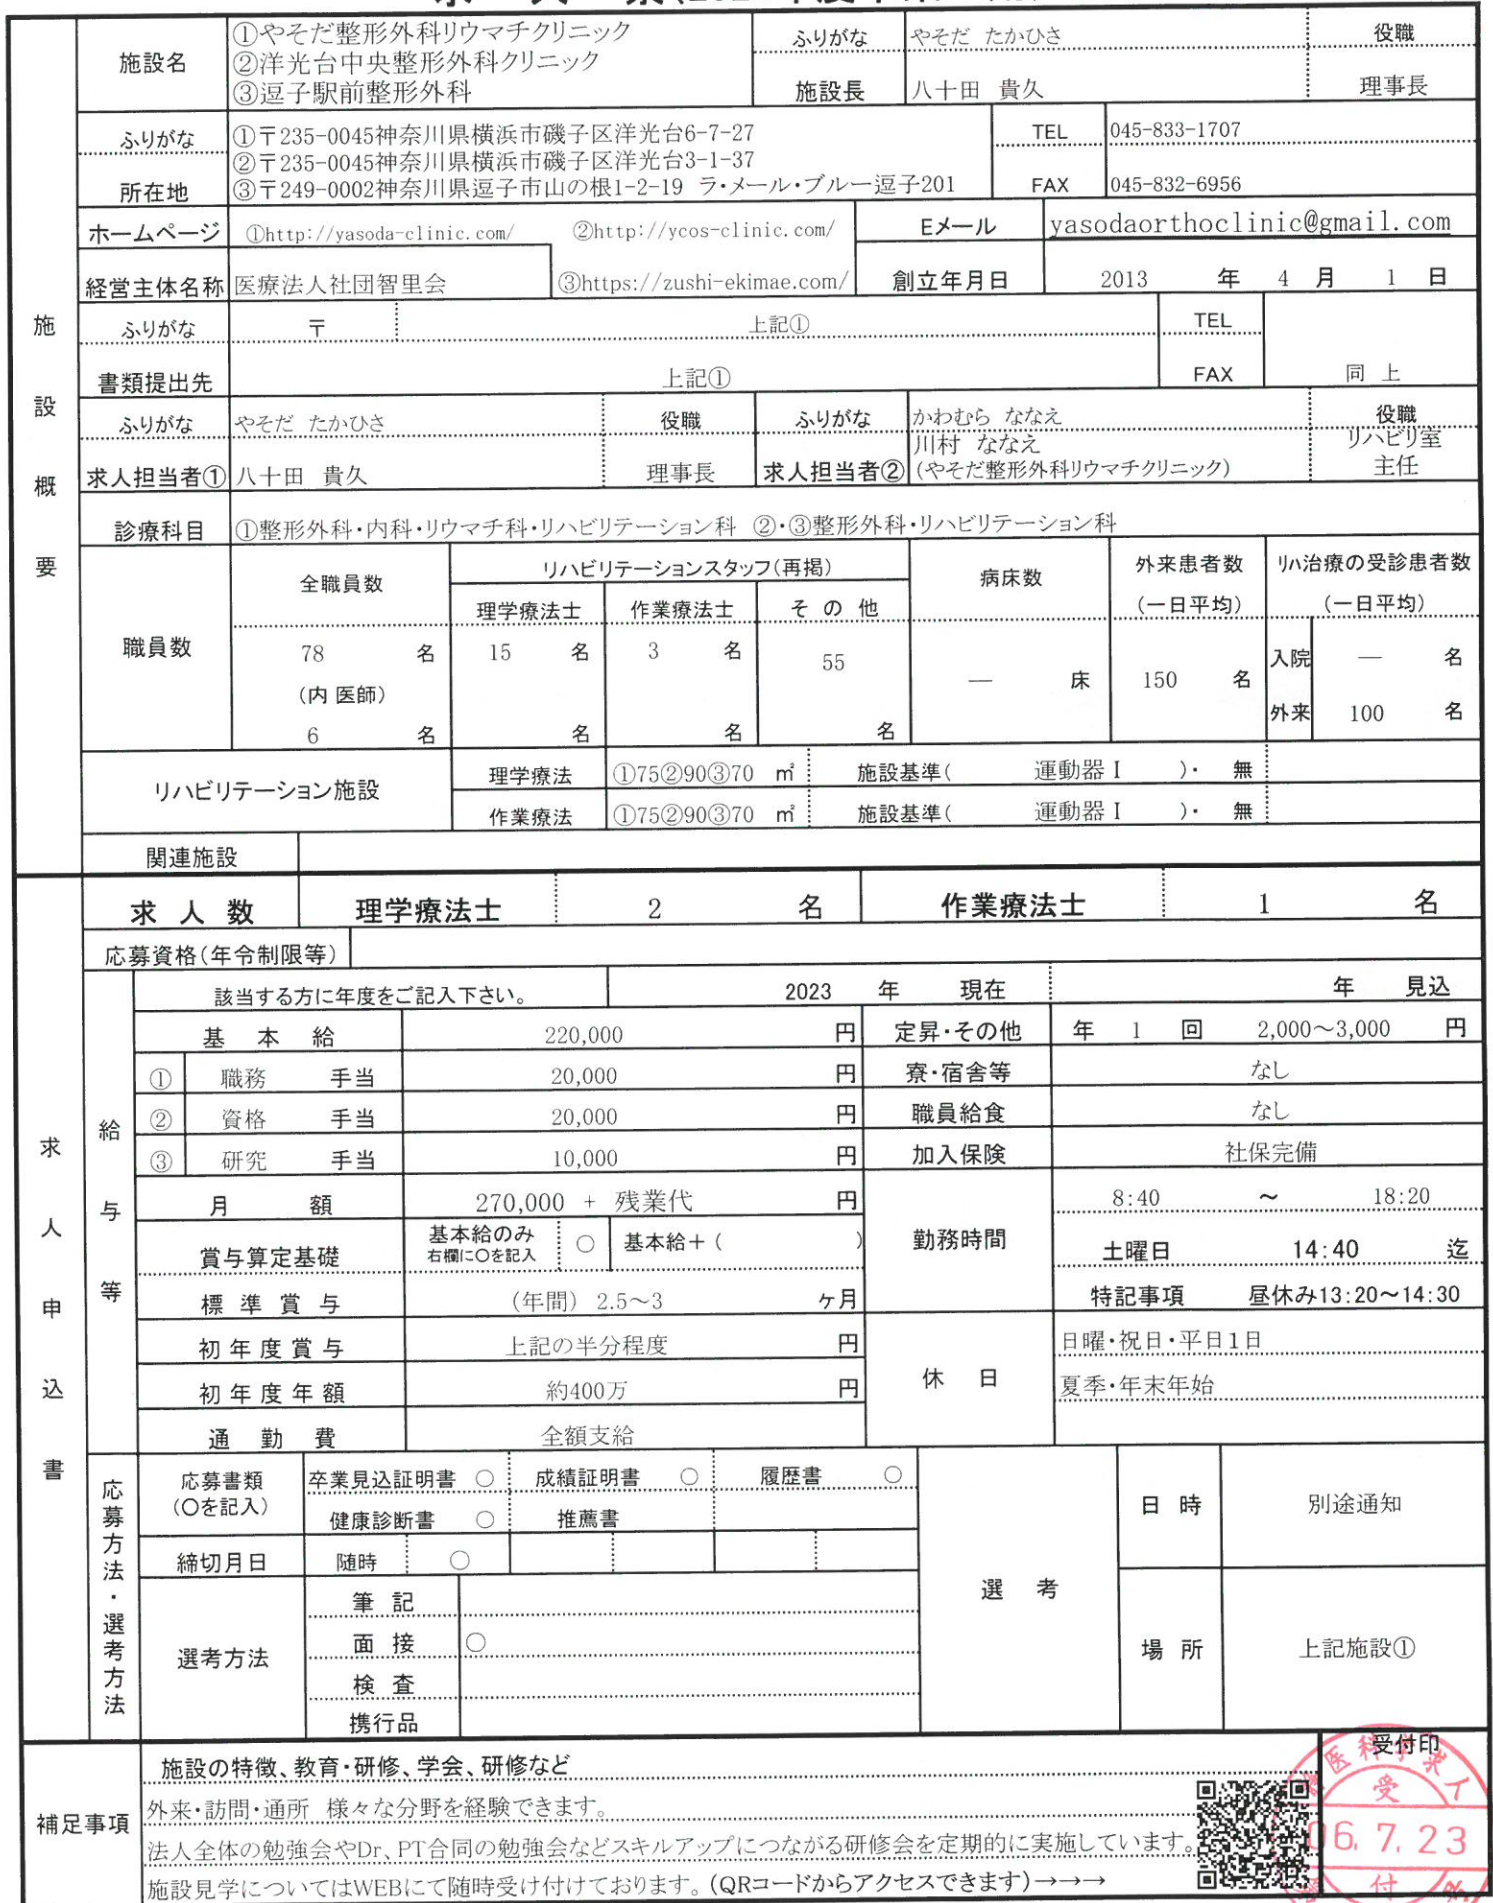 施設概要
施設名
①やそだ整形外科リウマチクリニック
②洋光台中央整形外科クリニック
③逗子駅前整形外科
ふりがな やそだ たかひさ 役職
施設長 八十田 貴久 理事長
ふりがな
所在地
①〒235-0045神奈川県横浜市磯子区洋光台6-7-27
②〒235-0045神奈川県横浜市磯子区洋光台3-1-37
③〒249-0002神奈川県逗子市山の根1-2-19 ラ・メール・ブルー逗子201
TEL 045-833-1707
FAX 045-832-6956
ホームページ ①http://yasoda-clinic.com/ ②http://ycos-clinic.com/ Eメール yasodaorthoclinic@gmail.com
経営主体名称 医療法人社団智里会 ③https://zushi-ekimae.com/ 創立年月日 2013 年 4 月 1 日
ふりがな 〒 上記① TEL
書類提出先 上記① FAX 同 上
ふりがな やそだ たかひさ 役職 ふりがな かわむら ななえ 役職
求人担当者① 八十田 貴久 理事長 求人担当者② 川村 ななえ
(やそだ整形外科リウマチクリニック)
リハビリ室
主任
診療科目 ①整形外科・内科・リウマチ科・リハビリテーション科 ②・③整形外科・リハビリテーション科
職員数
全職員数 リハビリテーションスタッフ(再掲) 病床数 外来患者数 リハ治療の受診患者数
理学療法士 作業療法士 そ の 他 (一日平均) (一日平均)
78 名 15 名 3 名 55 入院 ― 名
(内 医師) ― 床 150 名
6 名 名 名 名 外来 100 名
リハビリテーション施設
理学療法 ①75②90③70 ㎡ 施設基準( 運動器Ⅰ )・ 無
作業療法 ①75②90③70 ㎡ 施設基準( 運動器Ⅰ )・ 無
関連施設
求人申込書
求 人 数 理学療法士 2 名 作業療法士 1 名
応募資格(年令制限等)
給与等
該当する方に年度をご記入下さい。 2023 年 現在 年 見込
基 本 給 220,000 円 定昇・その他 年 1 回 2,000～3,000 円
① 職務 手当 20,000 円 寮・宿舎等 なし
② 資格 手当 20,000 円 職員給食 なし
③ 研究 手当 10,000 円 加入保険 社保完備
月 額 270,000 + 残業代 円 勤務時間 8:40 ～ 18:20
賞与算定基礎 基本給のみ 右欄に○を記入 ○ 基本給+( ) 土曜日 14:40 迄
標 準 賞 与 (年間) 2.5～3 ヶ月 特記事項 昼休み13:20～14:30
初 年 度 賞 与 上記の半分程度 円 休 日 日曜・祝日・平日1日
初 年 度 年 額 約400万 円 夏季・年末年始
通 勤 費 全額支給
応募方法・選考方法
応募書類
(○を記入)
卒業見込証明書 ○ 成績証明書 ○ 履歴書 ○
健康診断書 ○ 推薦書
締切月日 随時 ○
選考方法
筆 記
面 接 ○
検 査
携行品
選 考
日 時 別途通知
場 所 上記施設①
補足事項
施設の特徴、教育・研修、学会、研修など
外来・訪問・通所 様々な分野を経験できます。
法人全体の勉強会やDr、PT合同の勉強会などスキルアップにつながる研修会を定期的に実施しています。
施設見学についてはWEBにて随時受け付けております。(QRコードからアクセスできます)→→→
受付印
医科学求人
受
06.7.23
付